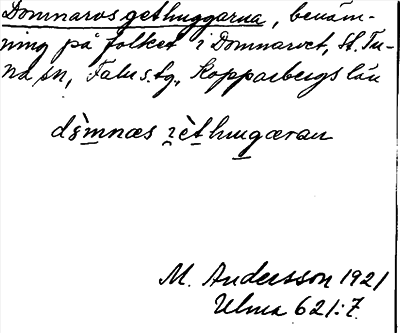 Domnarvsgethuggarna, benäm-
ning på folket i Domnarvet, St. Tu-
na sn, Falu s. fg., Kopparbergs län
M. Andersson 1921
Ulma 621:7.